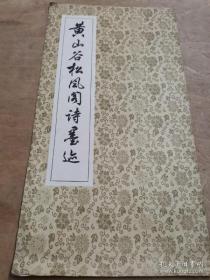 黄山谷松风阁诗墨迹